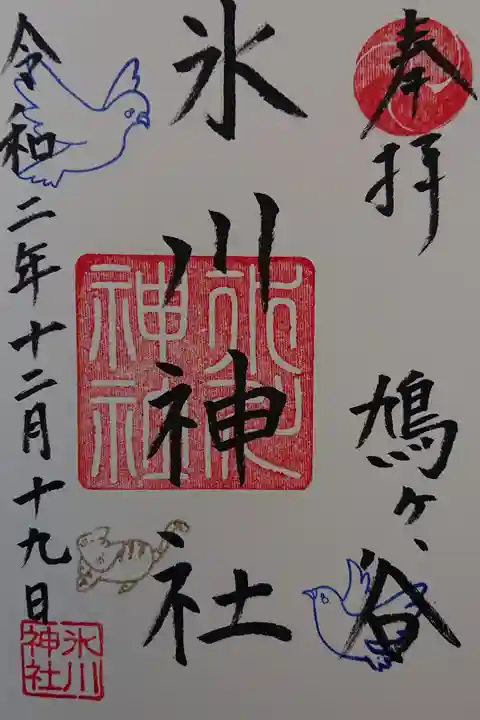 奉拝
鳩ヶ谷
氷川神社
氷川神社
令和二年十二月十九日
氷川神社